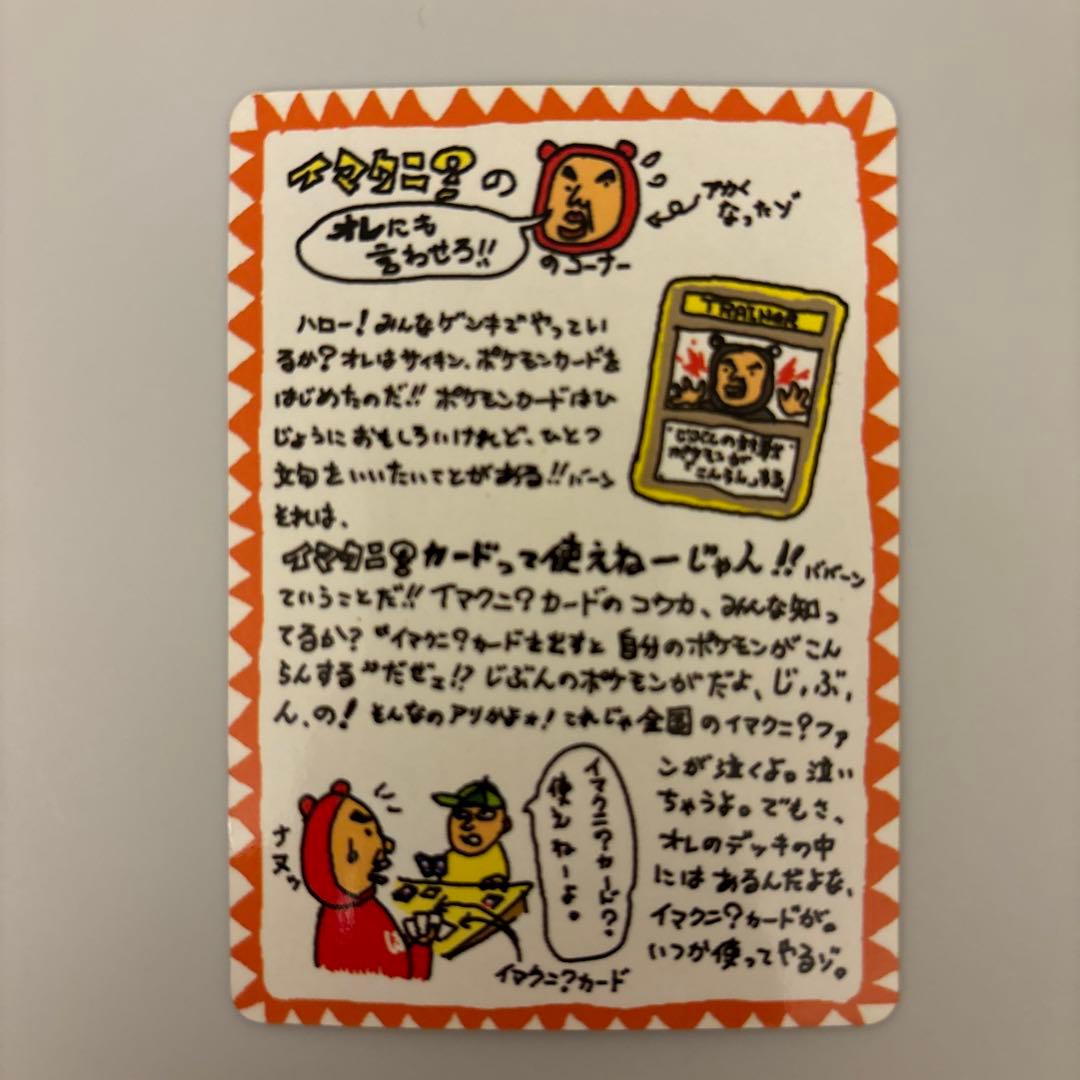 イマクニ?の
オレにも
言わせろ!!
のコーナー
アかく
なったゾ
ハロー!みんなゲンキでやってい
るか?オレはサイキン、ポケモンカードを
はじめたのだ!!ポケモンカードはひ
じょうにおもしろいけれど、ひとつ
文句をいいたいことがある!!バーン
それは、
TRAINER
じぶんの対戦
ポケモンが
「こんらん」する
イマクニ?カードって使えねーじゃん!!ババーン
ていうことだ!!イマクニ?カードのコウカ、みんな知っ
てるか?"イマクニ?カードを出すと自分のポケモンがこん
らんする"だぜェ!?じぶんのポケモンがだよ、じ,ぶ,
ん、の!そんなのアリかよォ!これじゃ全国のイマクニ?ファ
ンが泣くよ。泣い
ちゃうよ。でもさ、
オレのデッキの中
にはあるんだよな、
イマクニ?カードが。
いつか使ってやるゾ。
ナヌッ
イマクニ?カード?
使えねーよ。
イマクニ?カード